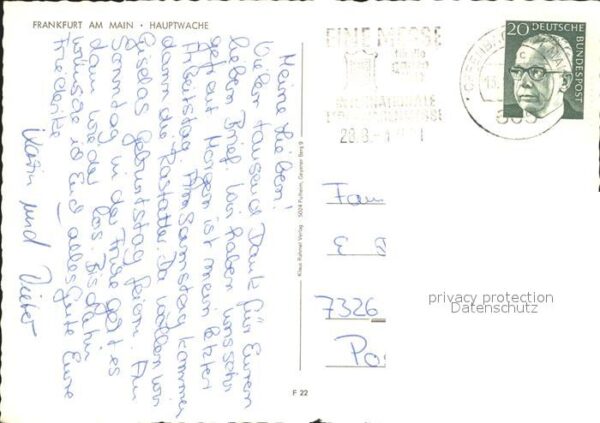 FRANKFURT AM MAIN · HAUPTWACHE
Meine Lieben!
Vielen tausend Dank für Euren
lieben Brief. Wir haben uns sehr
gefreut. Morgen ist mein letzter
Arbeitstag. Am Samstag kommen
dann die Rastatter. Da wollen wir
Giselas Geburtstag feiern. Am
Sonntag in der Frühe geht es
dann wieder los. Bis dahin
wünsche ich Euch alles Gute Eure
Friederike
Karin und Dieter
Klaus Rühmel Verlag · 5024 Pulheim, Geyener Berg 9
F 22
EINE MESSE
INTERNATIONALE
29.8.-
20 DEUTSCHE
BUNDESPOST
OFFENBACH
Fam
E
7326
Po
privacy protection
Datenschutz